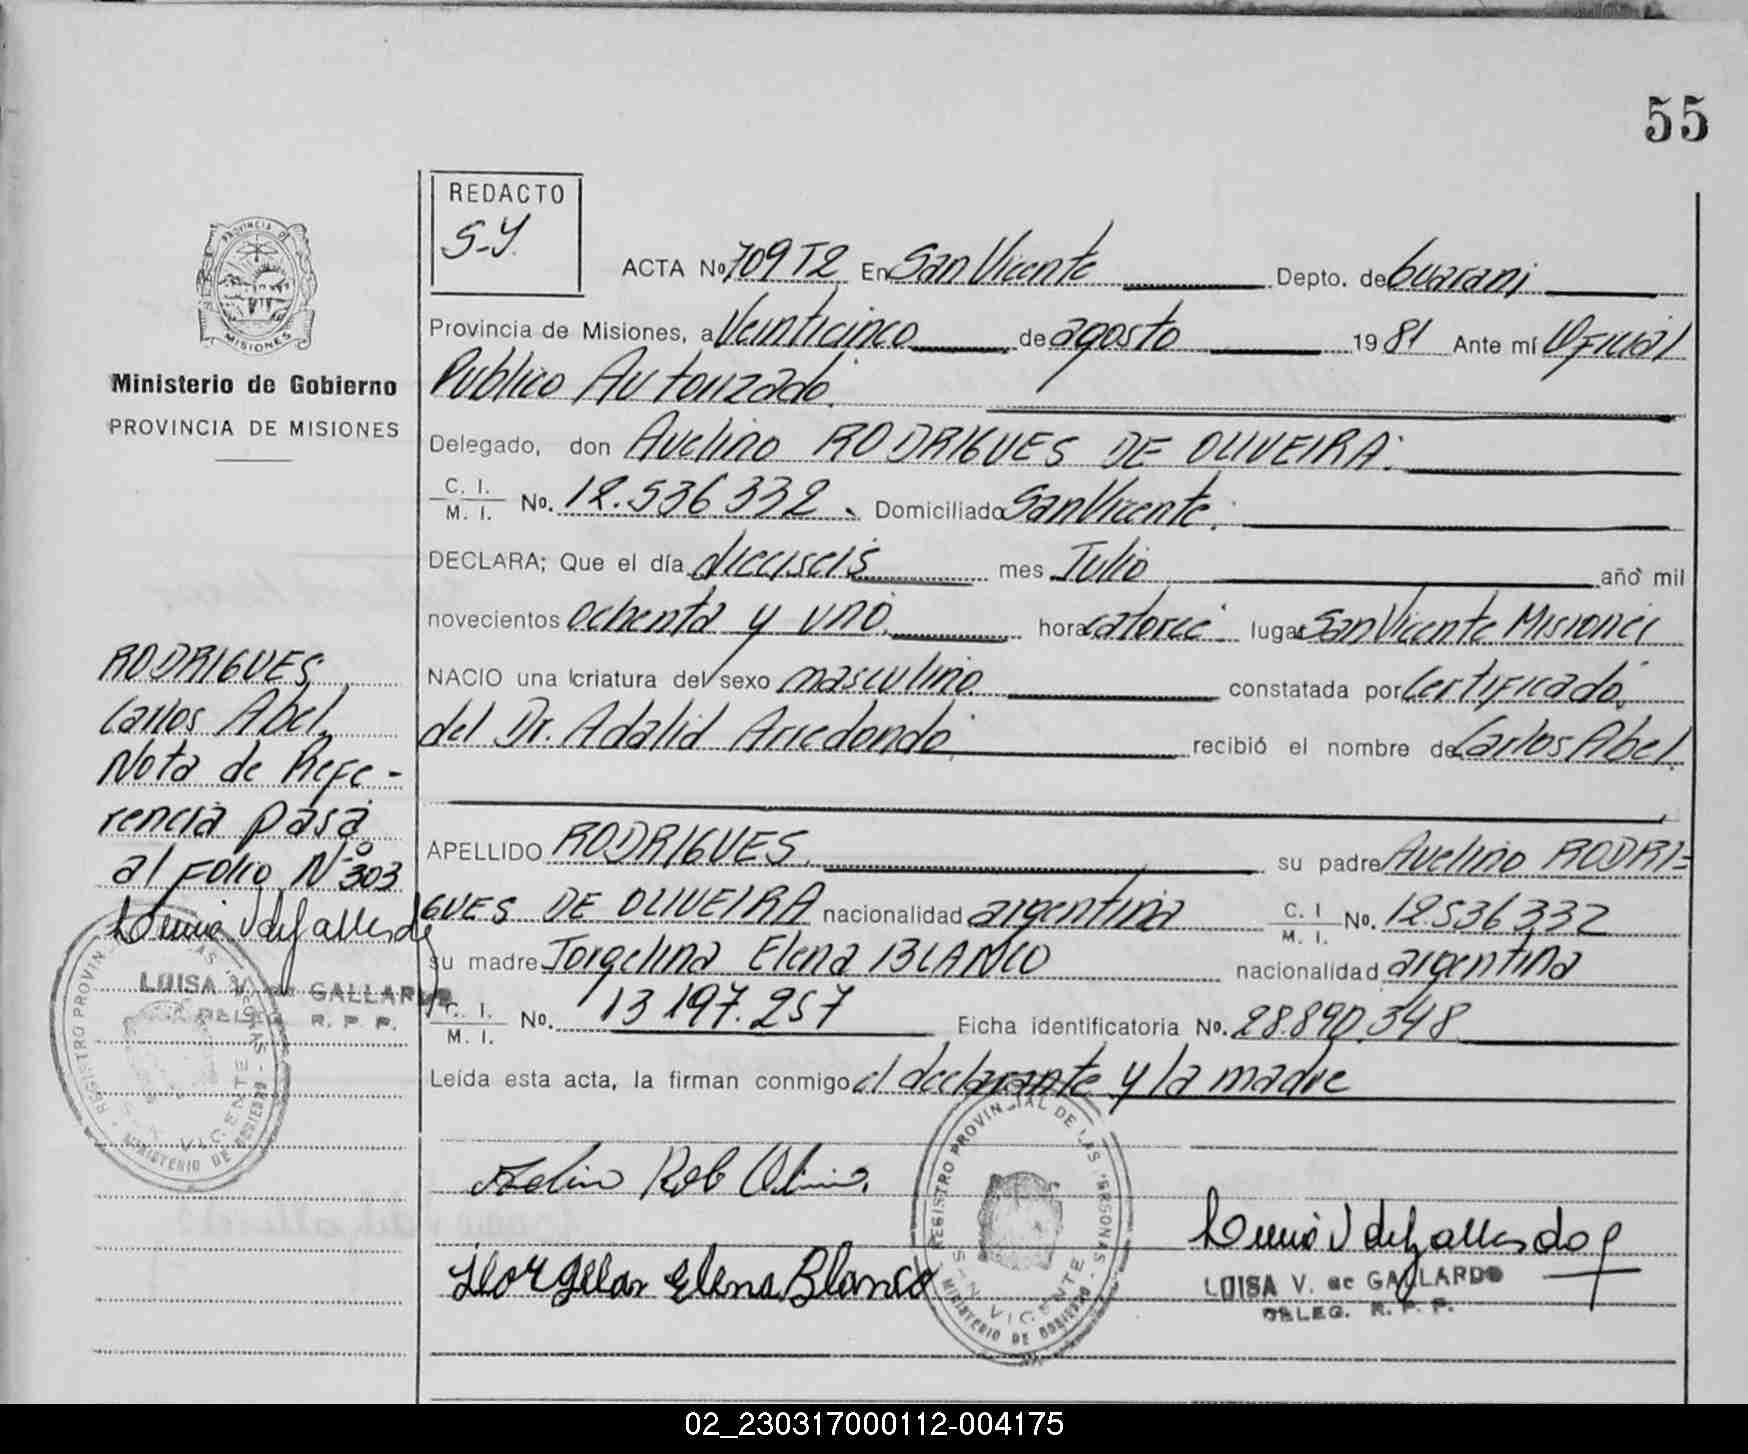 55
REDACTO
S-Y.
PROVINCIA D
MISIONES
Ministerio de Gobierno
PROVINCIA DE MISIONES
ACTA No 709 T2 En San Vicente Depto. de Guarani
Provincia de Misiones, a Veinticinco de agosto 1981 Ante mí Oficial
Publico Autorizado.
Delegado, don Avelino RODRIGUES DE OLIVEIRA.
C. I.
M. I. No. 12.536.332. Domiciliado San Vicente.
DECLARA; Que el día dieciseis mes Julio año mil
novecientos ochenta y uno hora catorce lugar San Vicente Misiones
NACIO una criatura del sexo masculino constatada por Certificado
del Dr. Adalid Arredondo recibió el nombre de Carlos Abel.
APELLIDO RODRIGUES. su padre Avelino RODRI=
GUES DE OLIVEIRA nacionalidad argentina C. I
M. I. No. 12.536.332
su madre Jorgelina Elena BLANCO nacionalidad argentina
C. I.
M. I. No. 13.197.257 Ficha identificatoria No. 28.890.348
Leída esta acta, la firman conmigo el declarante y la madre
RODRIGUES,
Carlos Abel.
Nota de Refe-
rencia pasa
al Folio Nº 303
LUISA V. de GALLARDO
DELEG. R. P. P.
REGISTRO PROVINCIAL DE LAS PERSONAS
VICENTE
MINISTERIO DE GOBIERNO
Elena Blanco
REGISTRO PROVINCIAL DE LAS PERSONAS
S-N VICENTE
MINISTERIO DE GOBIERNO
LUISA V. de GALLARDO
DELEG. R. P. P.
02_230317000112-004175